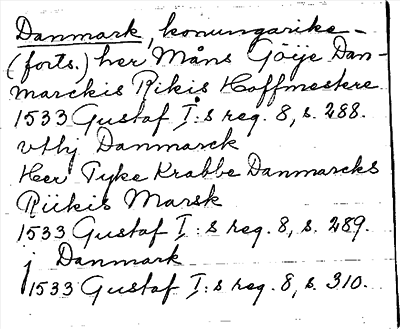 Danmark, konungarike –
(forts.) her Måns Göye Dan-
marckis Rikis Hoffmestere
1533 Gustaf I:s reg. 8, s. 288.
vthj Danmarck
Her Tyke Krabbe Danmarcks
Riikis Marsk
1533 Gustaf I:s reg. 8, s. 289.
j Danmark
1533 Gustaf I:s reg. 8, s. 310.